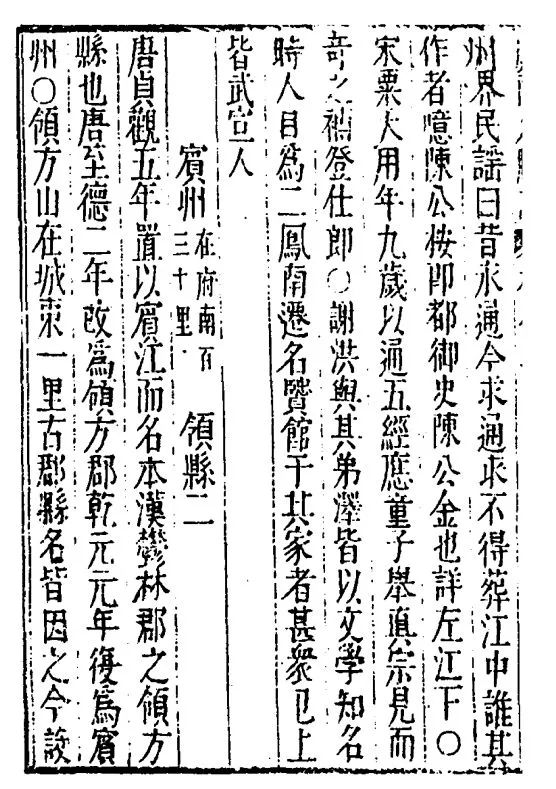 州界民謡曰昔永通今求通求不得葬江中誰其
作者噫陳公按即都御史陳公金也詳左江下〇
宋粟大用年九歲以通五經應童子舉真宗見而
竒之補登仕郎〇謝洪與其弟澤皆以文學知名
時人目為二鳳南遷名賢館于其家者甚衆已上
皆武宣人
賓州在府南百三十里領縣二
唐貞觀五年置以賓江而名本漢鬱林郡之領方
縣也唐至德二年改為領方郡乾元元年復為賓
州〇領方山在城東一里古郡縣名皆因之今設